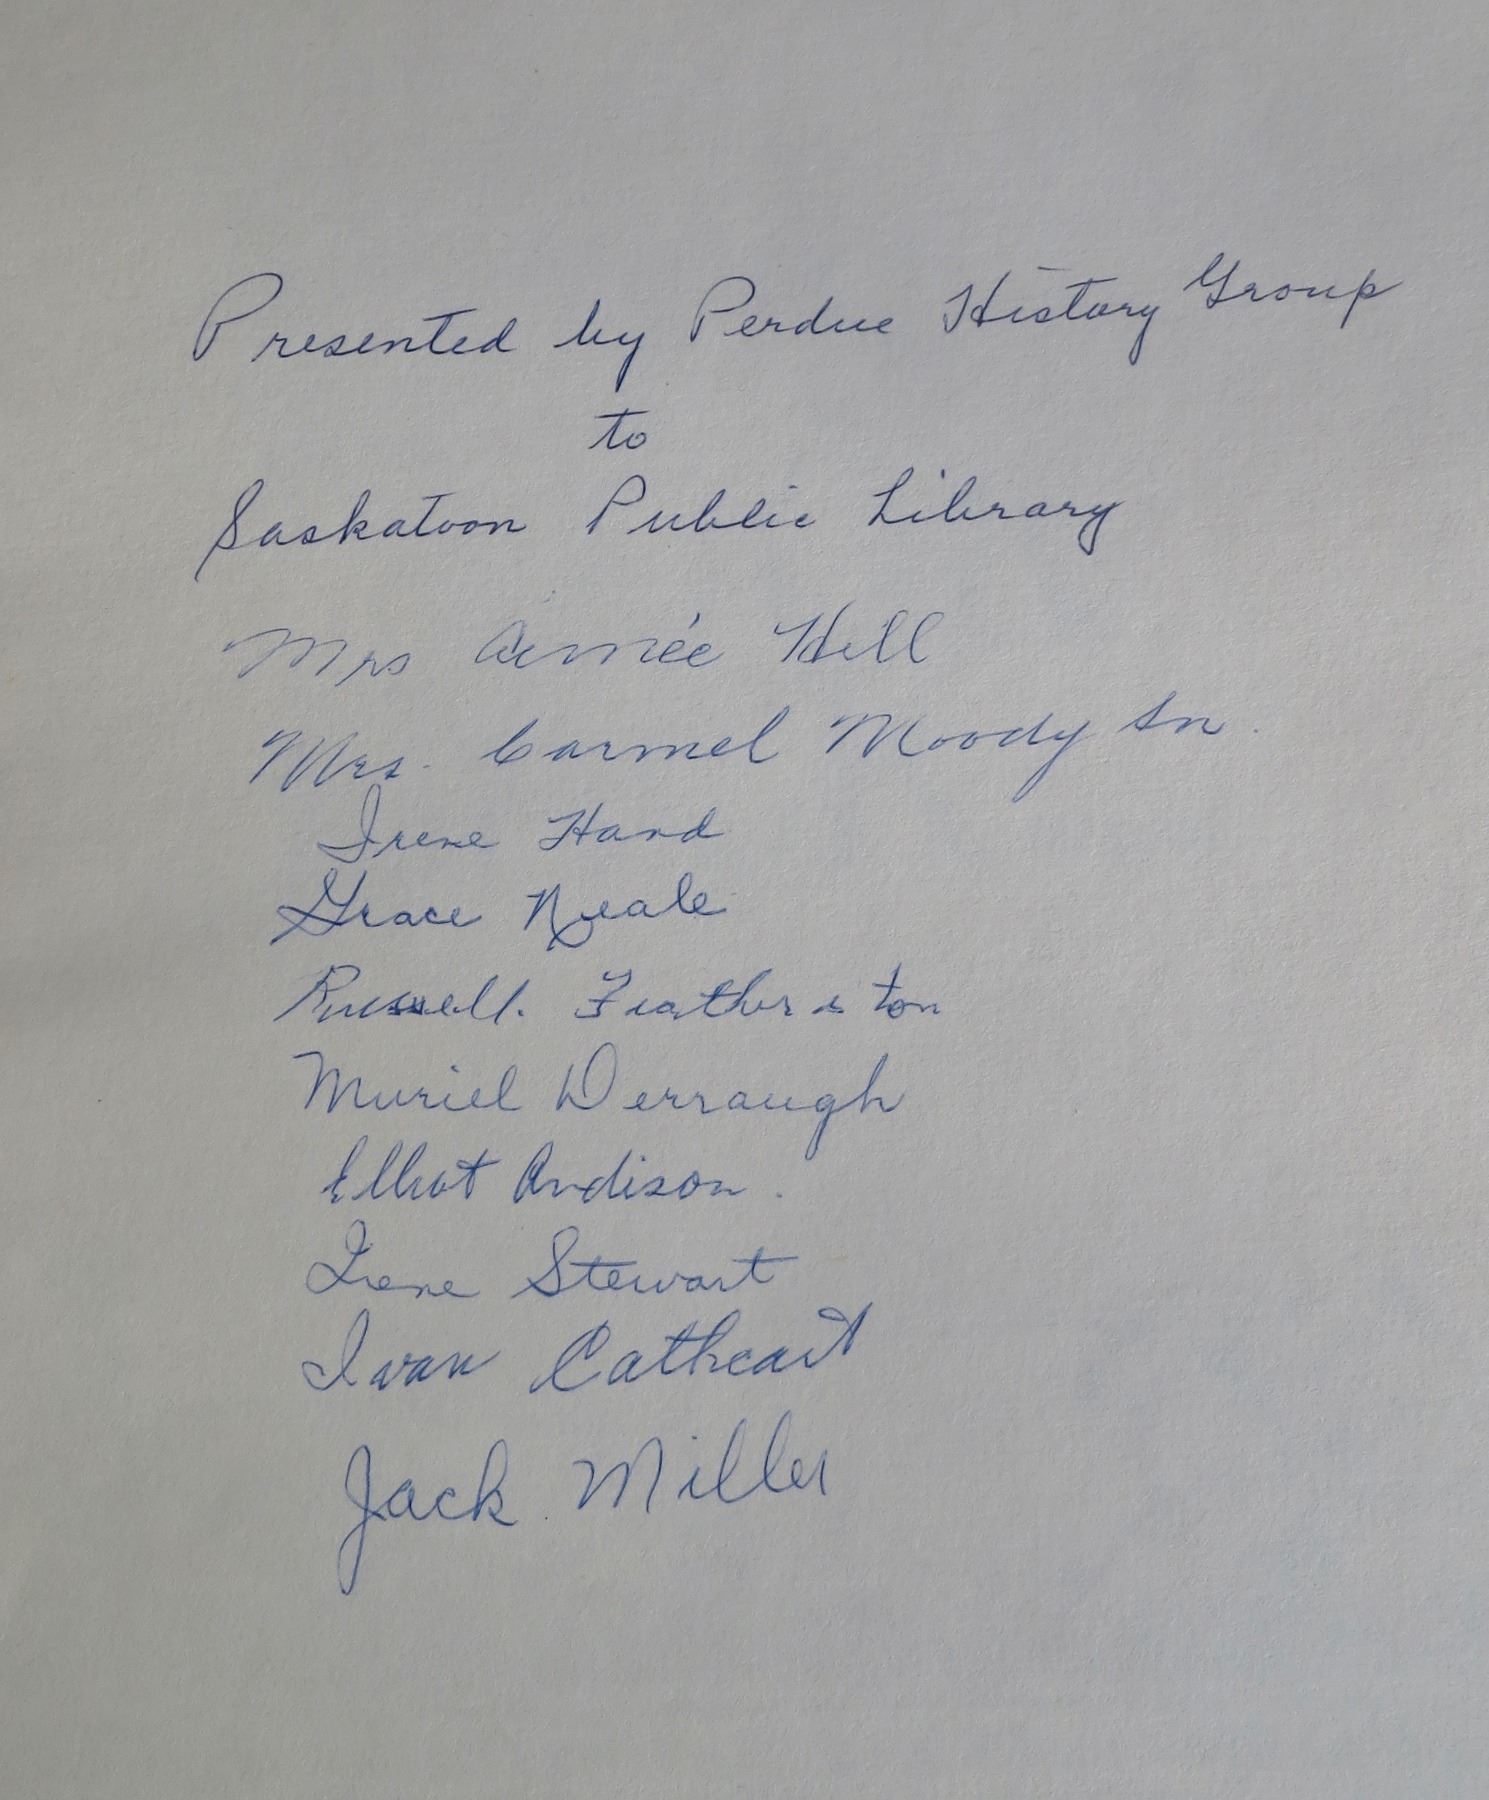 Presented by Perdue History Group
to
Saskatoon Public Library
Mrs Aimée Hill
Mrs. Carmel Moody Sr.
Irene Hand
Grace Neale
Russell. Featherston
Muriel Derraugh
Elliot Andison.
Irene Stewart
Ivan Cathcart
Jack Miller